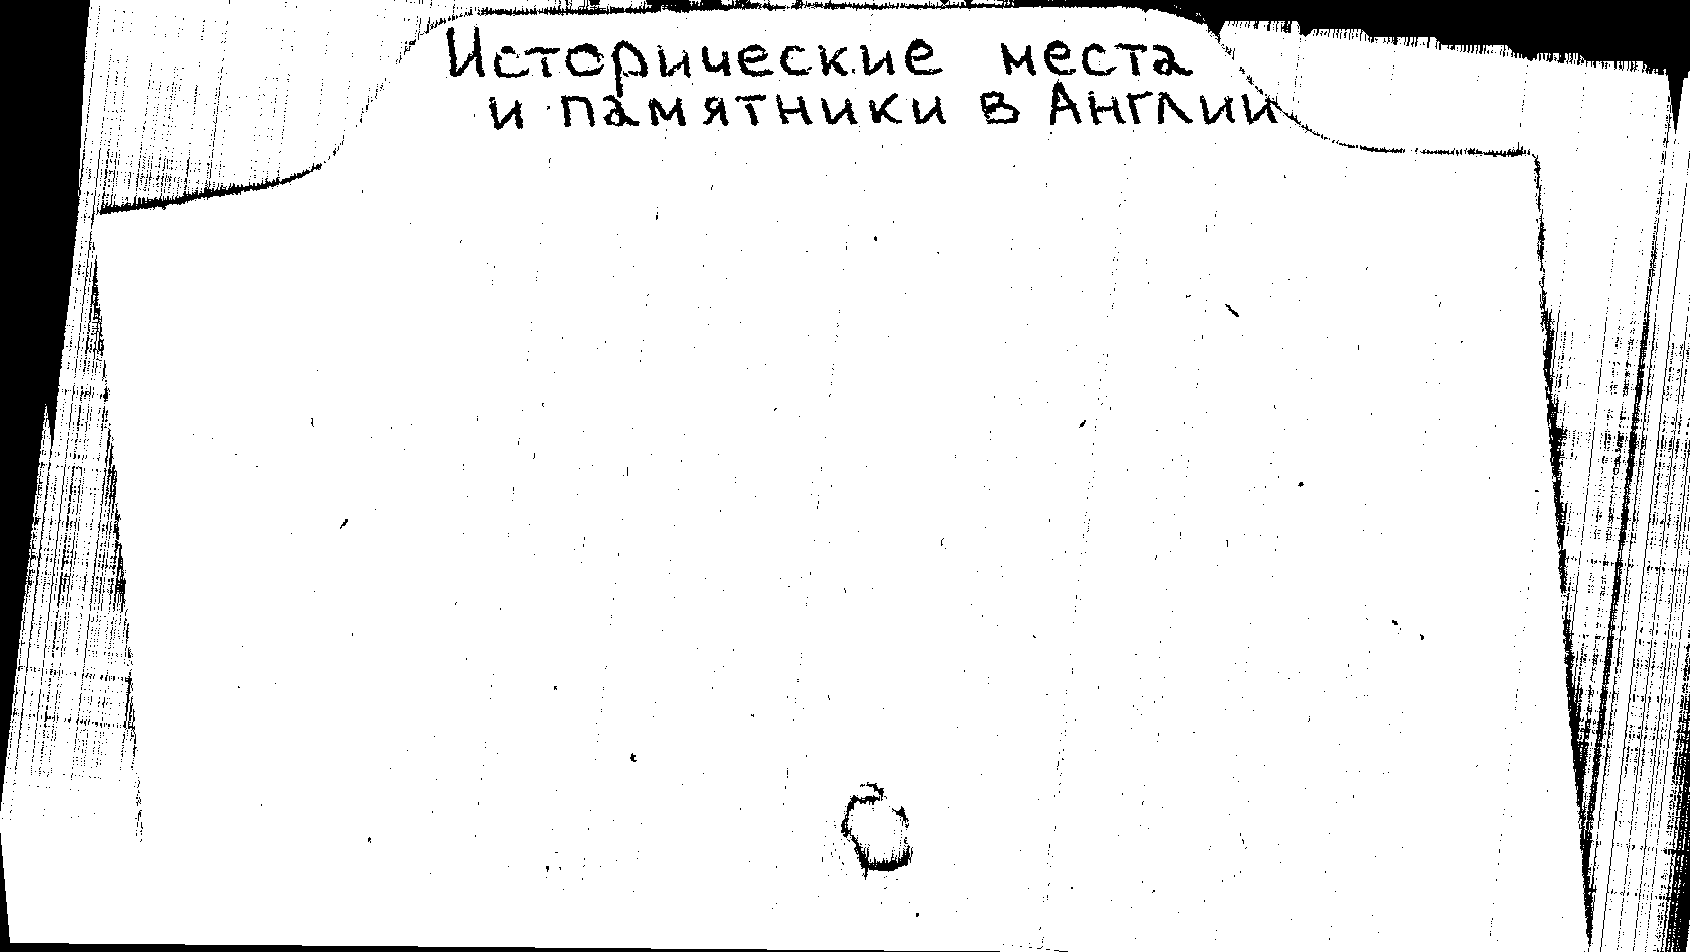 Исторические места
и памятники в Англии